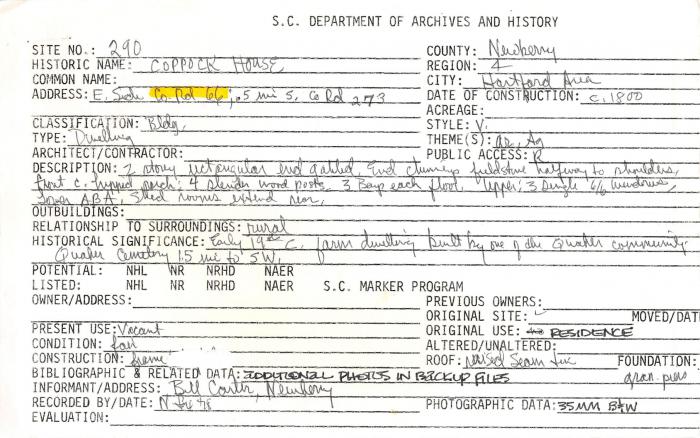 S.C. DEPARTMENT OF ARCHIVES AND HISTORY
SITE NO.: 290 COUNTY: Newberry
HISTORIC NAME: COPPOCK HOUSE REGION: 4
COMMON NAME: CITY: Hartford Area
ADDRESS: E. Side Co Rd 66, .5 mi S. Co Rd 273 DATE OF CONSTRUCTION: c. 1800
ACREAGE:
CLASSIFICATION: Bldg. STYLE: V.
TYPE: Dwelling THEME(S): ar, Ag
ARCHITECT/CONTRACTOR: PUBLIC ACCESS: R
DESCRIPTION: 2 story rectangular end gabled, End chimneys fieldstone halfway to shoulders,
front c. hipped porch; 4 slender wood posts. 3 Bays each floor. Upper; 3 single 6/6 windows,
Lower ABA, Shed rooms extend rear.
OUTBUILDINGS:
RELATIONSHIP TO SURROUNDINGS: rural
HISTORICAL SIGNIFICANCE: Early 19th C. farm dwelling built by one of the Quaker community
Quaker Cemetery 1.5 mi to SW.
POTENTIAL: NHL NR NRHD NAER
LISTED: NHL NR NRHD NAER S.C. MARKER PROGRAM
OWNER/ADDRESS: PREVIOUS OWNERS:
ORIGINAL SITE: MOVED/DAT
PRESENT USE: Vacant ORIGINAL USE: RESIDENCE
CONDITION: fair ALTERED/UNALTERED:
CONSTRUCTION: frame ROOF: raised Seam tin FOUNDATION:
gran. piers
BIBLIOGRAPHIC & RELATED DATA: ADDITIONAL PHOTOS IN BACKUP FILES
INFORMANT/ADDRESS: Bill Carter, Newberry
RECORDED BY/DATE: PHOTOGRAPHIC DATA: 35MM B+W
EVALUATION: